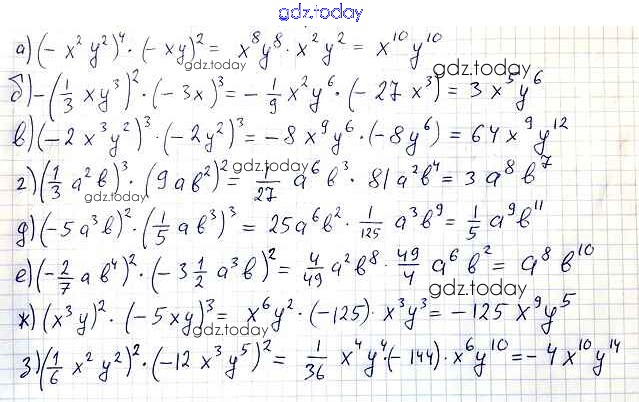 gdz.today
а) (- x² y²)⁴ · (- xy)² = x⁸y⁸ · x² y² = x¹⁰ y¹⁰
gdz.today
gdz.today
б) -(1/3 xy³)² · (- 3x)³ = - 1/9 x² y⁶ · (- 27 x³) = 3 x⁵ y⁶
в) (- 2 x³ y²)³ · (- 2y²)³ = - 8 x⁹ y⁶ · (- 8y⁶) = 64 x⁹ y¹²
г) (1/3 a² b)³ · (9 a b²)² = 1/27 a⁶ b³ · 81 a² b⁴ = 3 a⁸ b⁷
gdz.today
gdz.today
д) (- 5 a³ b)² · (1/5 a b³)³ = 25 a⁶ b² · 1/125 a³ b⁹ = 1/5 a⁹ b¹¹
е) (- 2/7 a b⁴)² · (- 3 1/2 a³ b)² = 4/49 a² b⁸ · 49/4 a⁶ b² = a⁸ b¹⁰
gdz.today
ж) (x³ y)² · (- 5xy)³ = x⁶ y² · (- 125) · x³ y³ = - 125 x⁹ y⁵
gdz.today
з) (1/6 x² y²)² · (- 12 x³ y⁵)² = 1/36 x⁴ y⁴ · (- 144) · x⁶ y¹⁰ = - 4 x¹⁰ y¹⁴